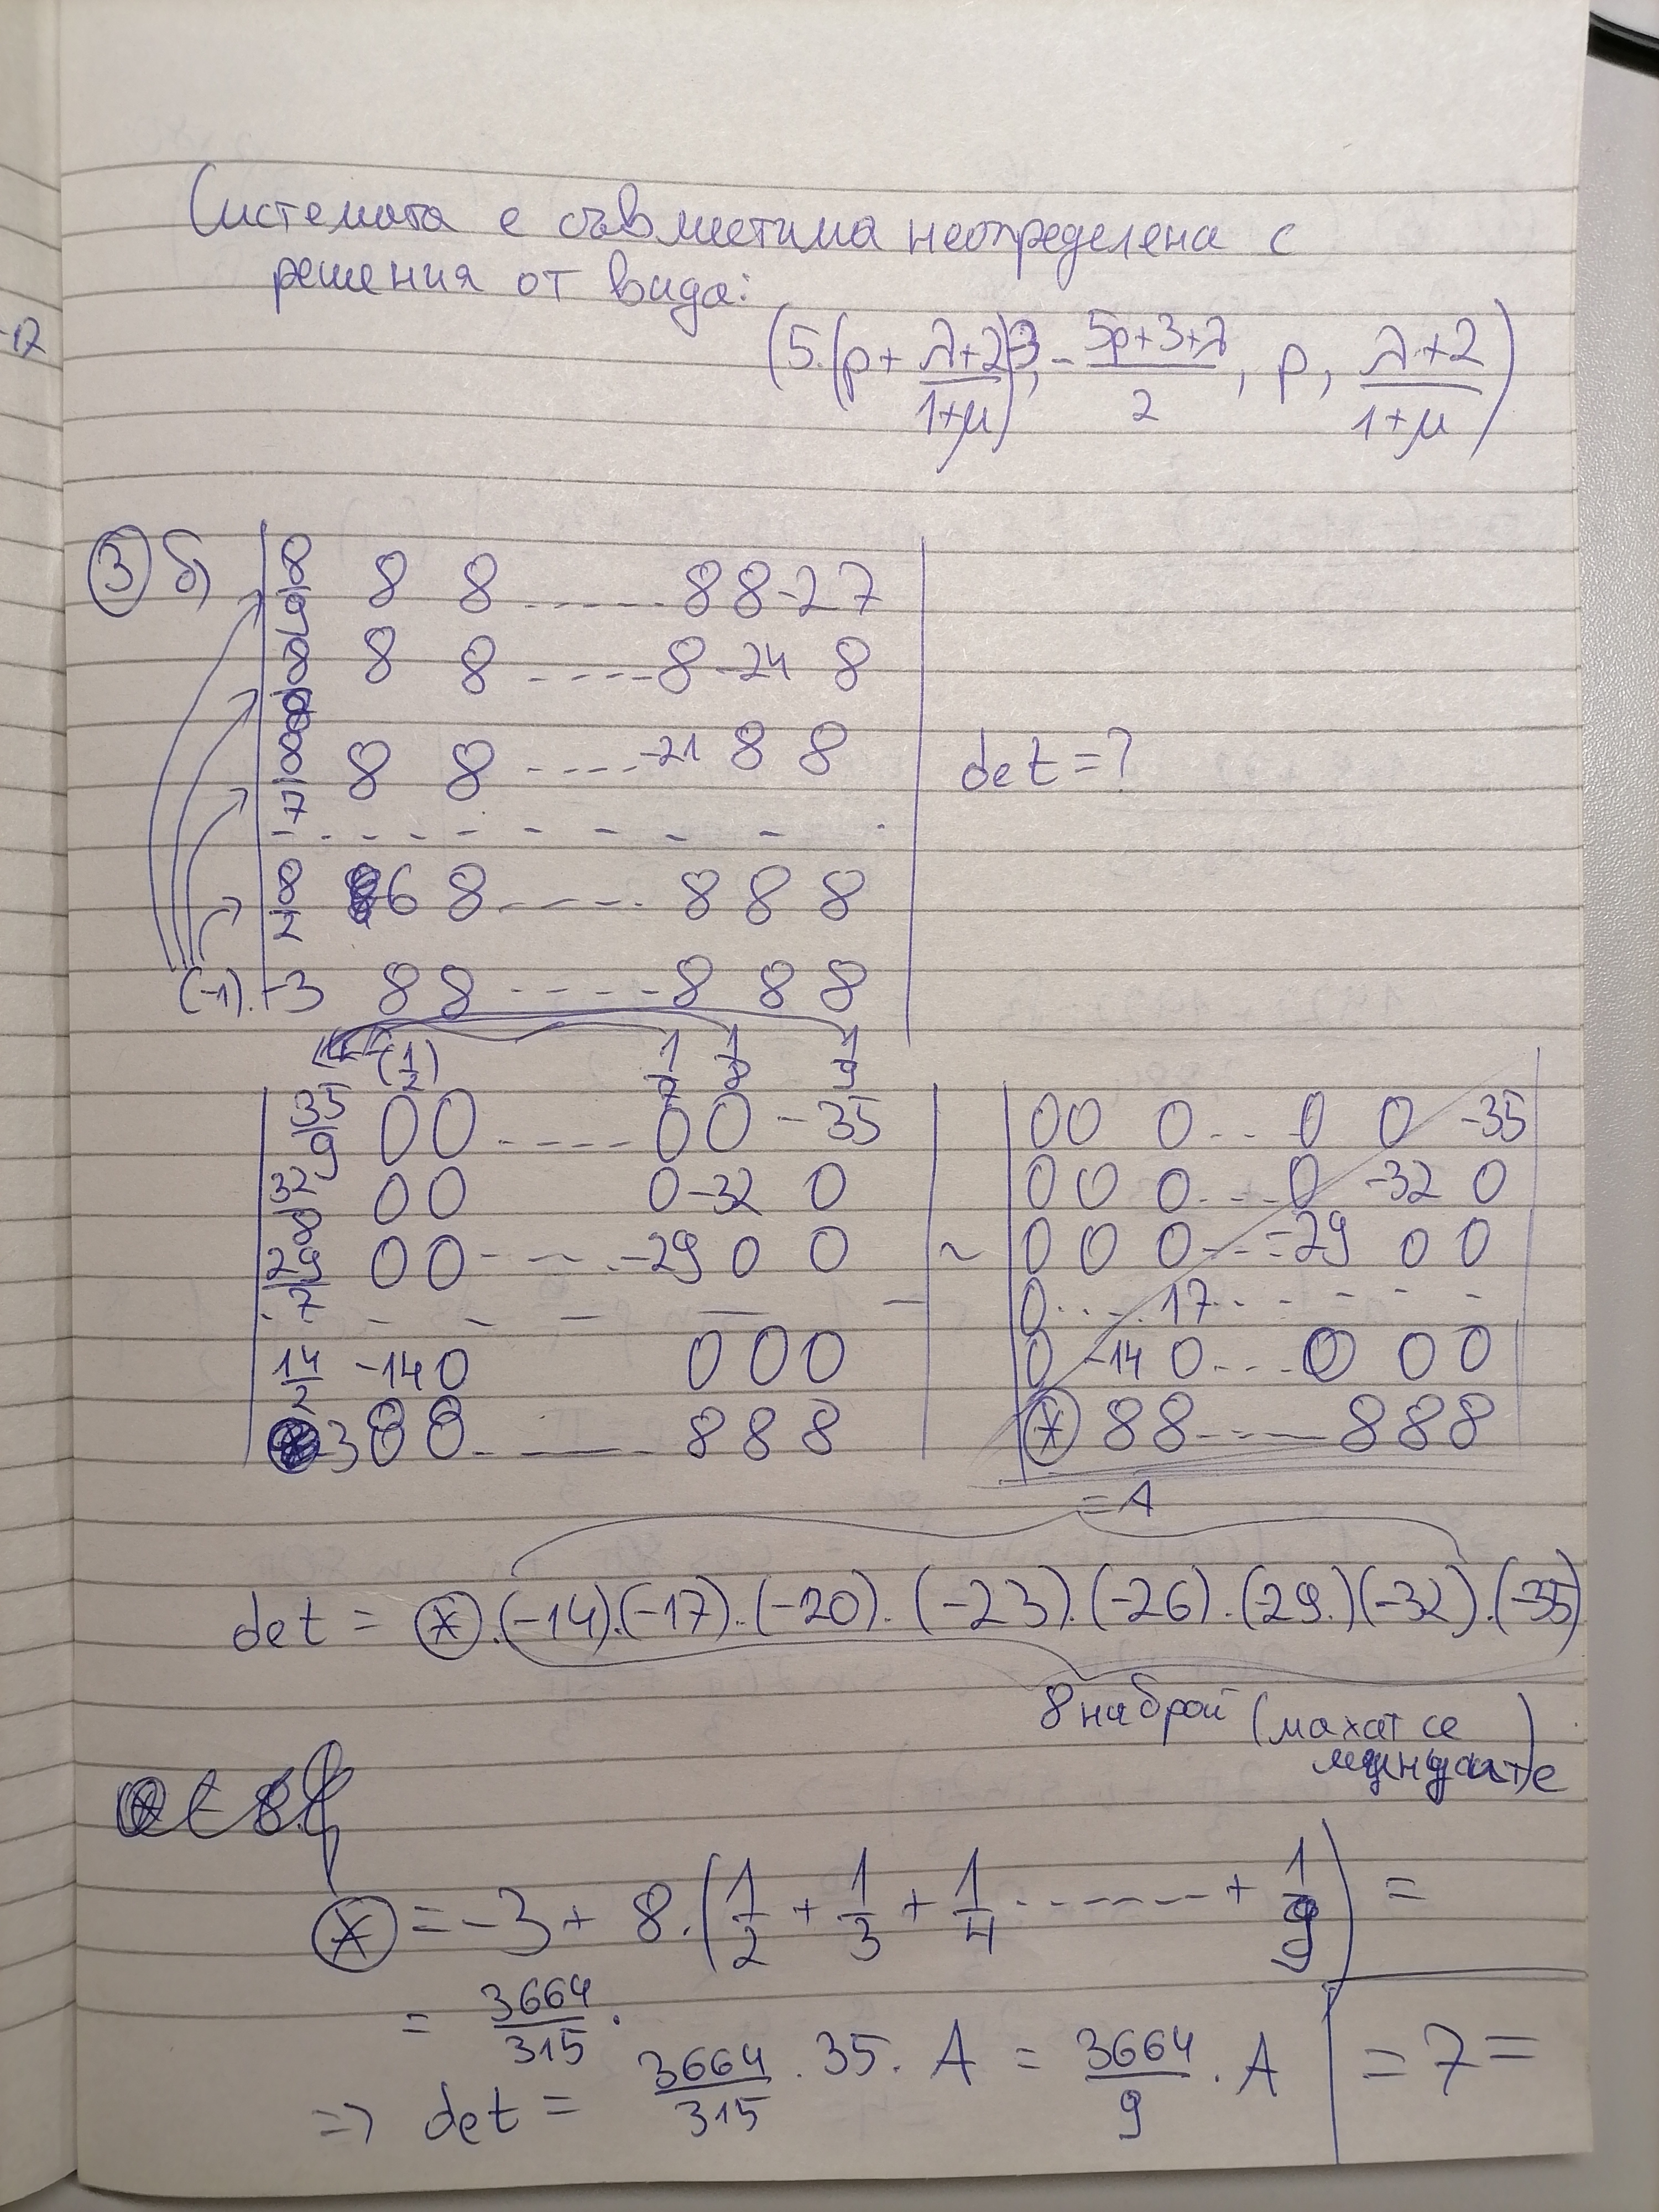 -17
Системата е съвместима неопределена с
решения от вида:
(5.(p + (λ+2)/(1+μ))-3, -(5p+3+λ)/2, p, (λ+2)/(1+μ))
③ б)
8/9 8 8 ----- 8 8 -27
8 8 8 ---- 8 -24 8
8/7 8 8 ---- -21 8 8
det=?
- - - - - - - - -
8/2 -6 8 ---- 8 8 8
(-1). -3 8 8 ---- 8 8 8
(1/2) 1/7 1/8 1/9
35/9 0 0 ---- 0 0 -35
32/8 0 0 0 -32 0
29/7 0 0 - - - -29 0 0
- - - - - - -
14/2 -14 0 0 0 0
-3 8 8 ---- 8 8 8
~
0 0 0 .. 0 0 -35
0 0 0 --- 0 -32 0
0 0 0 --- -29 0 0
0 ... 17 - - - - -
0 -14 0 --- 0 0 0
⊛ 8 8 ---- 8 8 8
= A
det = ⊛.(-14).(-17).(-20).(-23).(-26).(29.)(-32).(-35)
8 на брой (махат се
минусите)
⊛ = -3 + 8.(1/2 + 1/3 + 1/4 ------ + 1/9) =
= 3664/315 .
=> det = 3664/315 . 35. A = 3664/9 . A
= 7 =